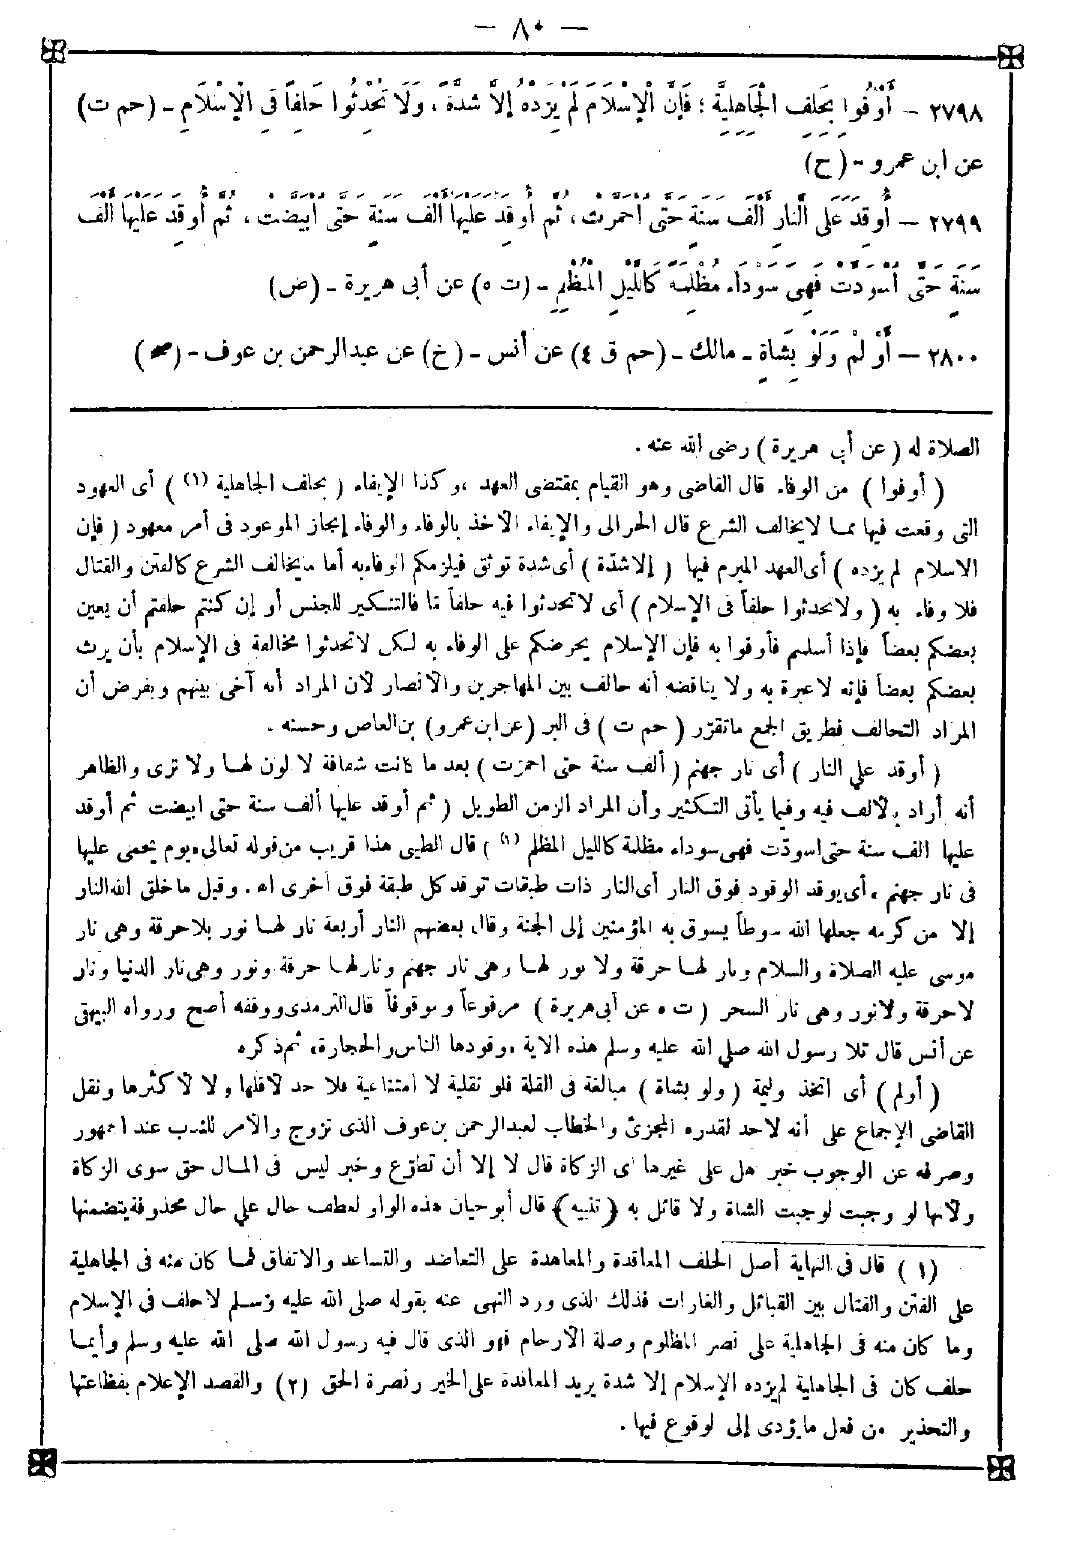 — ٨٠ —
٢٧٩٨ — أَوْفُوا بِحَلِفِ الْجَاهِلِيَّةِ ؛ فَإِنَّ الْإِسْلَامَ لَمْ يَزِدْهُ إِلاَّ شِدَّةً ، وَلَا تُحْدِثُوا حَلِفاً فِي الْإِسْلَامِ - (حم ت)
عن ابن عمرو - (ح)
٢٧٩٩ — أُوقِدَ عَلَى النَّارِ أَلْفَ سَنَةٍ حَتَّى احْمَرَّتْ ، ثُمَّ أُوقِدَ عَلَيْهَا أَلْفَ سَنَةٍ حَتَّى ابْيَضَّتْ ، ثُمَّ أُوقِدَ عَلَيْهَا أَلْفَ
سَنَةٍ حَتَّى اسْوَدَّتْ فَهِيَ سَوْدَاءُ مُظْلِمَةٌ كَاللَّيْلِ الْمُظْلِمِ - (ت ه) عن أبى هريرة - (ض)
٢٨٠٠ — أَوْلِمْ وَلَوْ بِشَاةٍ - مالك - (حم ق ٤) عن أنس - (خ) عن عبدالرحمن بن عوف - (صح)
الصلاة له ( عن أبى هريرة ) رضى الله عنه .
( أوفوا ) من الوفاء قال القاضى وهو القيام بمقتضى العهد ، وكذا الإيفاء ( بحلف الجاهلية (١) ) أى العهود
التى وقعت فيها مما لايخالف الشرع قال الحرالى والإيفاء الأخذ بالوفاء والوفاء إيجاز الموعود فى أمر معهود ( فإن
الاسلام لم يزده ) أى العهد المبرم فيها ( إلا شدّة ) أى شدة توثق فيلزمكم الوفاء به أما ما يخالف الشرع كالفتن والقتال
فلا وفاء به ( ولا تحدثوا حلفاً فى الإسلام ) أى لاتحدثوا فيه حلفاً ما فالتنكير للجنس أو إن كنتم حلفتم أن يعين
بعضكم بعضاً فإذا أسلتم فأوفوا به فإن الإسلام يحرضكم على الوفاء به لكن لاتحدثوا مخالفة فى الإسلام بأن يرث
بعضكم بعضاً فإنه لاعبرة به ولا يناقضه أنه حالف بين المهاجرين والأنصار لأن المراد أنه آخى بينهم وبفرض أن
المراد التحالف فطريق الجمع ماتقرّر ( حم ت ) فى البر (عن ابن عمرو) بن العاص وحسنه .
( أوقد على النار ) أى نار جهنم ( ألف سنة حتى احمرت ) بعد ما كانت شفافة لا لون لها ولا ترى والظاهر
أنه أراد بالألف فيه وفيما يأتى التكثير وأن المراد الزمن الطويل ( ثم أوقد عليها ألف سنة حتى ابيضت ثم أوقد
عليها الف سنة حتى اسودّت فهى سوداء مظلمة كالليل المظلم (١) ) قال الطيبى هذا قريب من قوله تعالى «يوم يحمى عليها
فى نار جهنم » أى يوقد الوقود فوق النار أى النار ذات طبقات توقد كل طبقة فوق أخرى اه . وقيل ما خلق الله النار
إلا من كرمه جعلها الله سوطاً يسوق به المؤمنين إلى الجنة وقال بعضهم النار أربعة نار لها نور بلاحرقة وهى نار
موسى عليه الصلاة والسلام ونار لها حرقة ولا نور لها وهى نار جهنم ونار لها حرقة ونور وهى نار الدنيا ونار
لاحرقة ولانور وهى نار السحر ( ت ه عن أبى هريرة ) مرفوعاً وموقوفاً قال الترمذى ووقفه أصح ورواه البيهقى
عن أنس قال تلا رسول الله صلى الله عليه وسلم هذه الآية «وقودها الناس والحجارة» ثم ذكره
( أولم ) أى اتخذ وليمة ( ولو بشاة ) مبالغة فى القلة فلو تقليلية لا امتناعية فلا حد لأقلها ولا لأكثرها ونقل
القاضى الإجماع على أنه لاحد لقدره المجزئ والخطاب لعبدالرحمن بن عوف الذى تزوج والأمر للندب عند الجمهور
وصرفه عن الوجوب خبر هل على غيرها أى الزكاة قال لا إلا أن تطوّع وخبر ليس فى المال حق سوى الزكاة
ولأنها لو وجبت لوجبت الشاة ولا قائل به ﴿ تنبيه ﴾ قال أبو حيان هذه الواو لعطف حال على حال محذوفة يتضمنها
(١) قال فى النهاية أصل الحلف المعاقدة والمعاهدة على التعاضد والتساعد والاتفاق فما كان منه فى الجاهلية
على الفتن والقتال بين القبائل والغارات فذلك الذى ورد النهى عنه بقوله صلى الله عليه وسلم لاحلف فى الإسلام
وما كان منه فى الجاهلية على نصر المظلوم وصلة الأرحام فهو الذى قال فيه رسول الله صلى الله عليه وسلم وأيما
حلف كان فى الجاهلية لم يزده الإسلام إلا شدة يريد المعاقدة على الخير ونصرة الحق (٢) والقصد الإعلام بفظاعتها
والتحذير من فعل ما يؤدى إلى لوقوع فيها .